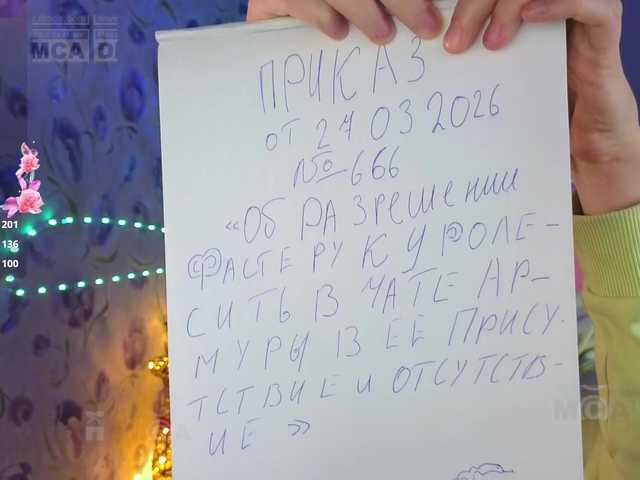 MCA D
201
136
100
ПРИКАЗ
ОТ 24 03 2026
№ 666
«ОБ РАЗРЕШЕНИИ
ФАСТЕРУ К УРОЛЕ-
СИТЬ В ЧАТЕ АР-
МУРЫ В ЕЕ ПРИСУ-
ТСТВИЕ И ОТСУТСТВ-
ИЕ»